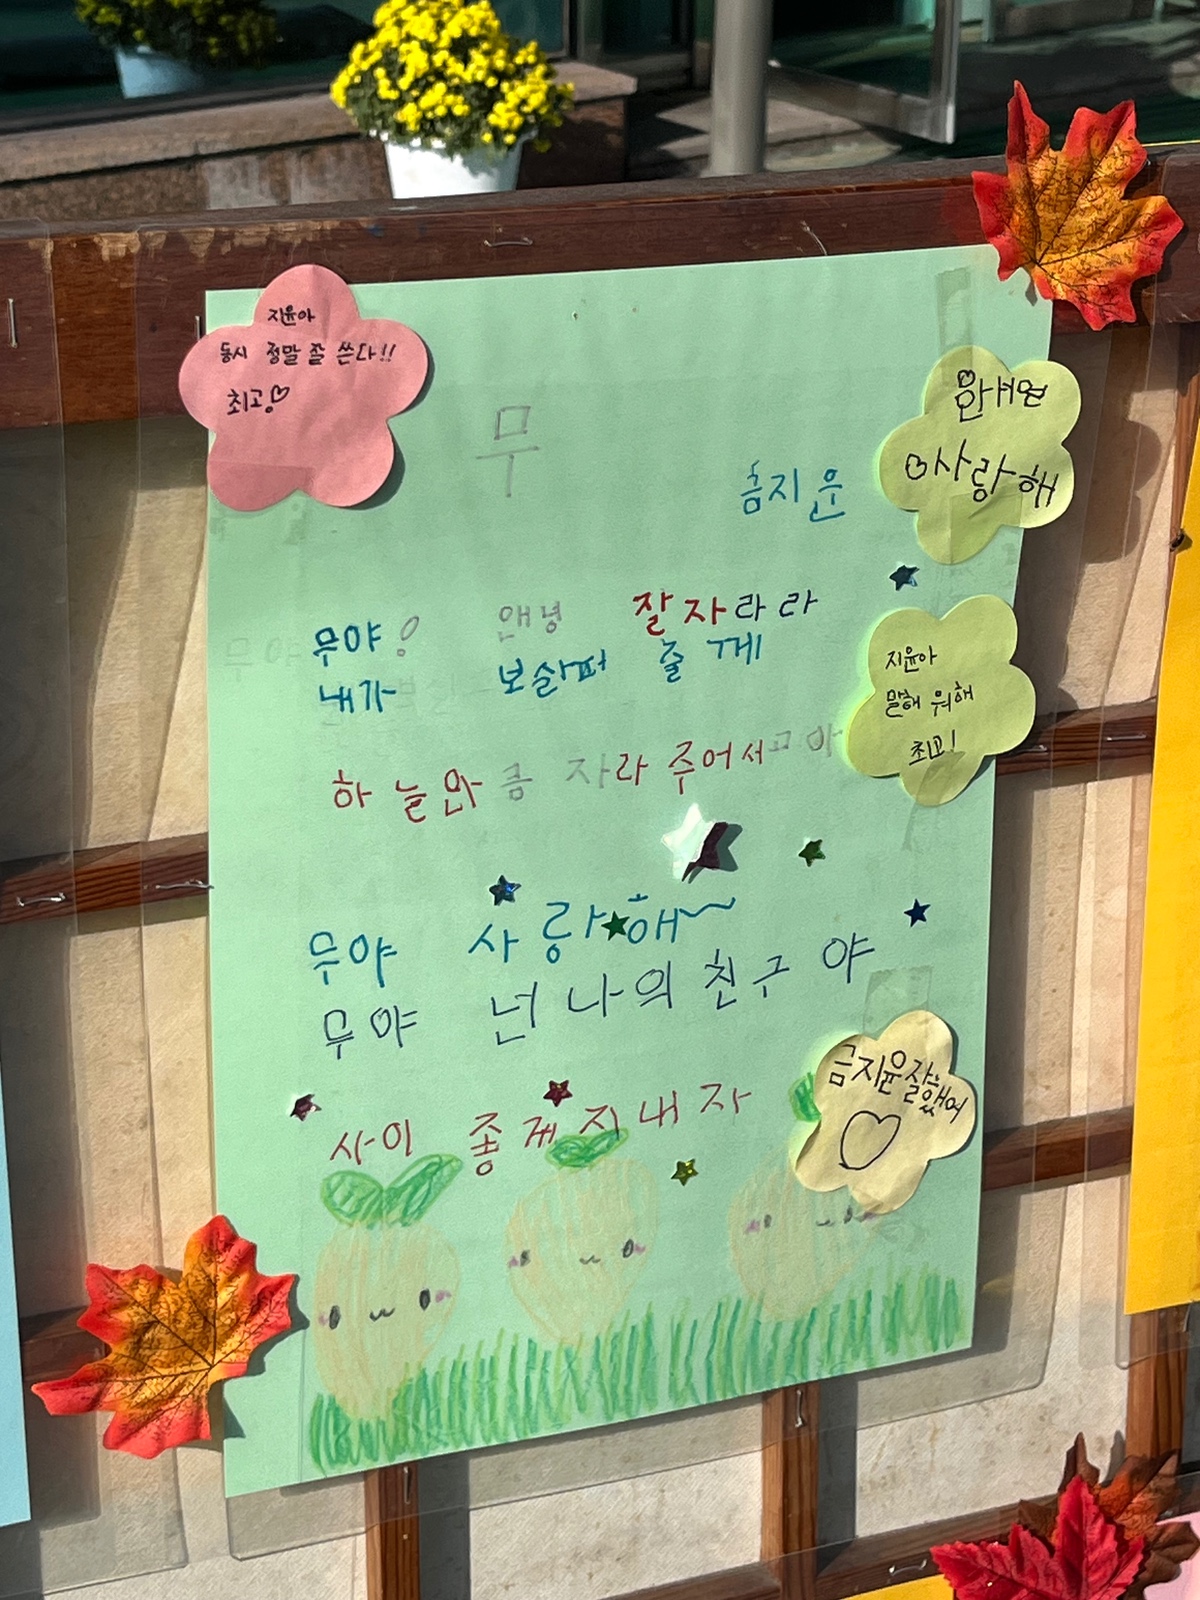 지윤아
동시 정말 잘 쓴다!!
최고!
무
금지윤
안서연
사랑해
무야! 안녕 잘 자라라
내가 보살펴 줄게
지윤아
말해 뭐해
최고!
하늘만큼 자라 주어서 고마
무야 사랑해~
무야 넌 나의 친구야
사이 좋게 지내자
금지윤잘했어